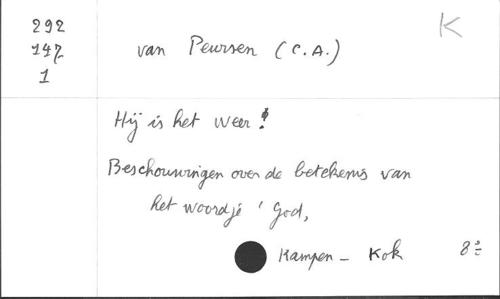 K
292
147
1
van Peursen (C.A.)
Hij is het weer!
Beschouwingen over de betekenis van
het woordje 'God,
Kampen - Kok 8°